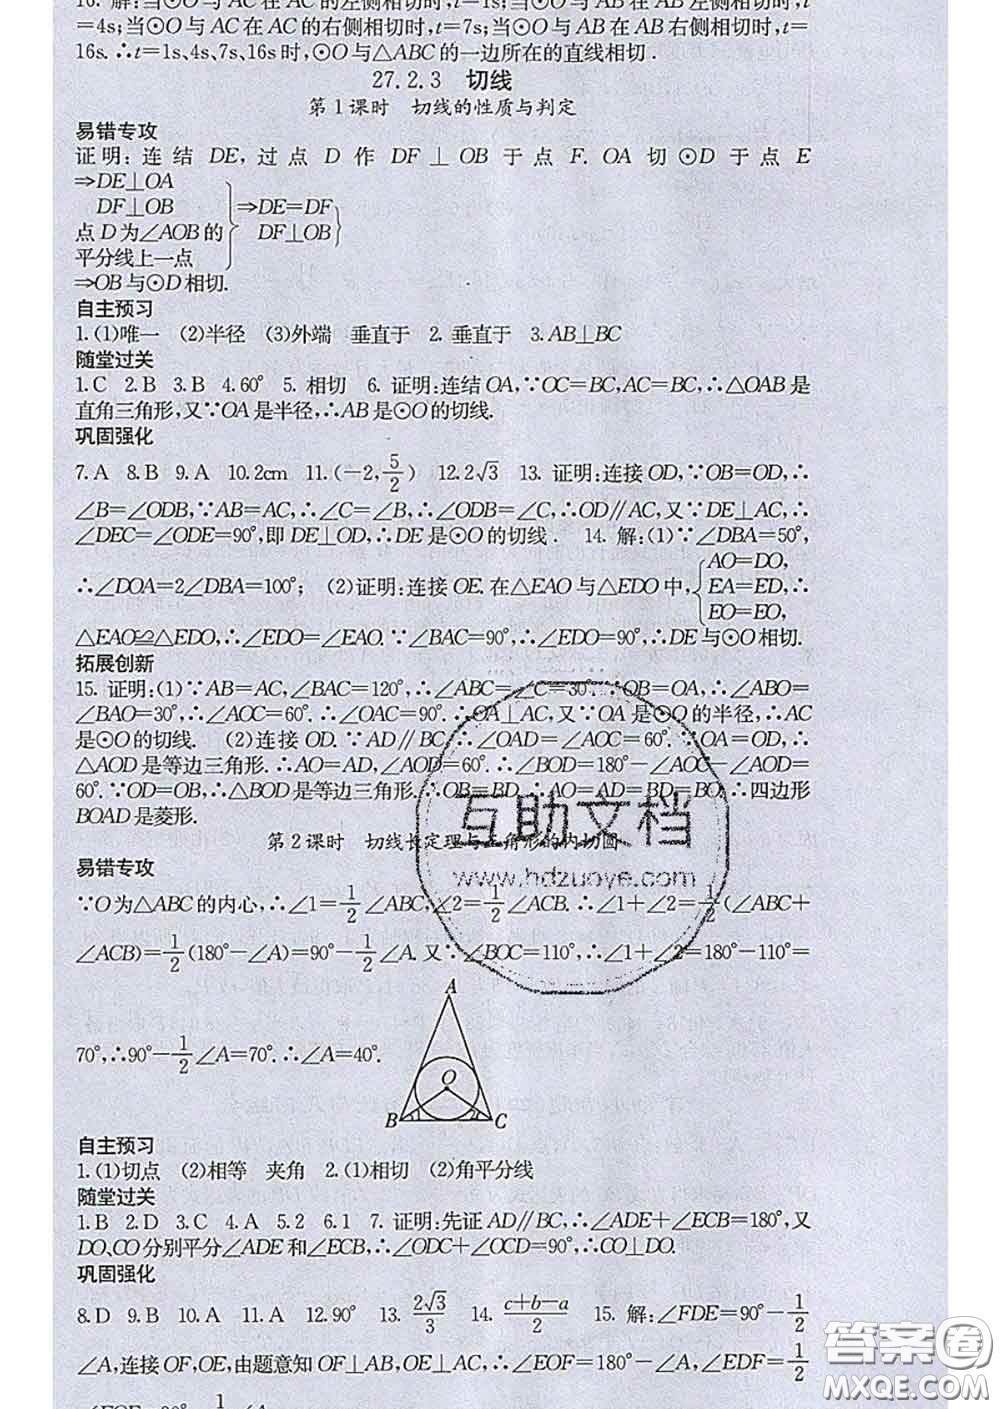 16. 解:当⊙O与AC在AC的左侧相切时,t=1s;当⊙O与AB在AB左侧相切时,t
=4s;当⊙O与AC在AC的右侧相切时,t=7s;当⊙O与AB在AB右侧相切时,t=
16s.∴t=1s、4s、7s、16s时,⊙O与△ABC的一边所在的直线相切.
27.2.3 切线
第1课时 切线的性质与判定
易错专攻
证明:连结DE,过点D作DF⊥OB于点F. OA切⊙D于点E
⇒DE⊥OA
DF⊥OB ⇒DE=DF
点D为∠AOB的 DF⊥OB
平分线上一点
⇒OB与⊙D相切.
自主预习
1.(1)唯一 (2)半径 (3)外端 垂直于 2. 垂直于 3.AB⊥BC
随堂过关
1.C 2.B 3.B 4.60° 5. 相切 6. 证明:连结OA,∵OC=BC,AC=BC,∴△OAB是
直角三角形,又∵OA是半径,∴AB是⊙O的切线.
巩固强化
7.A 8.B 9.A 10.2cm 11.(-2,5/2) 12.2√3 13. 证明:连接OD,∵OB=OD,∴
∠B=∠ODB,∵AB=AC,∴∠C=∠B,∴∠ODB=∠C,∴OD∥AC,又∵DE⊥AC,∴
∠DEC=∠ODE=90°,即DE⊥OD,∴DE是⊙O的切线. 14. 解:(1)∵∠DBA=50°,
∴∠DOA=2∠DBA=100°; (2)证明:连接OE.在△EAO与△EDO中,{AO=DO,
EA=ED,∴
EO=EO,
△EAO≌△EDO,∴∠EDO=∠EAO.∵∠BAC=90°,∴∠EDO=90°,∴DE与⊙O相切.
拓展创新
15. 证明:(1)∵AB=AC,∠BAC=120°,∴∠ABC=∠C=30°.∵OB=OA,∴∠ABO=
∠BAO=30°,∴∠AOC=60°.∴∠OAC=90°.∴OA⊥AC,又∵OA是⊙O的半径,∴AC
是⊙O的切线. (2)连接OD.∵AD∥BC,∴∠OAD=∠AOC=60°.∵OA=OD,∴
△AOD是等边三角形.∴AO=AD,∠AOD=60°.∴∠BOD=180°-∠AOC-∠AOD=
60°.∵OD=OB,∴△BOD是等边三角形.∴OB=BD.∴AO=AD=BD=BO.∴四边形
BOAD是菱形.
第2课时 切线长定理与三角形的内切圆
易错专攻
∵O为△ABC的内心,∴∠1=1/2∠ABC,∠2=1/2∠ACB.∴∠1+∠2=1/2(∠ABC+
∠ACB)=1/2(180°-∠A)=90°-1/2∠A.又∵∠BOC=110°,∴∠1+∠2=180°-110°=
70°,∴90°-1/2∠A=70°.∴∠A=40°.
A
O
B 1 2 C
自主预习
1.(1)切点 (2)相等 夹角 2.(1)相切 (2)角平分线
随堂过关
1.B 2.D 3.C 4.A 5.2 6.1 7. 证明:先证AD∥BC,∴∠ADE+∠ECB=180°,又
DO、CO分别平分∠ADE和∠ECB,∴∠ODC+∠OCD=90°,∴CO⊥DO.
巩固强化
8.D 9.B 10.A 11.A 12.90° 13. 2√3/3 14. (c+b-a)/2 15. 解:∠FDE=90°-1/2
∠A,连接OF,OE,由题意知OF⊥AB,OE⊥AC,∴∠EOF=180°-∠A,∠EDF=1/2
互助文档
www.hdzuoye.com
答案圈
MXQE.COM